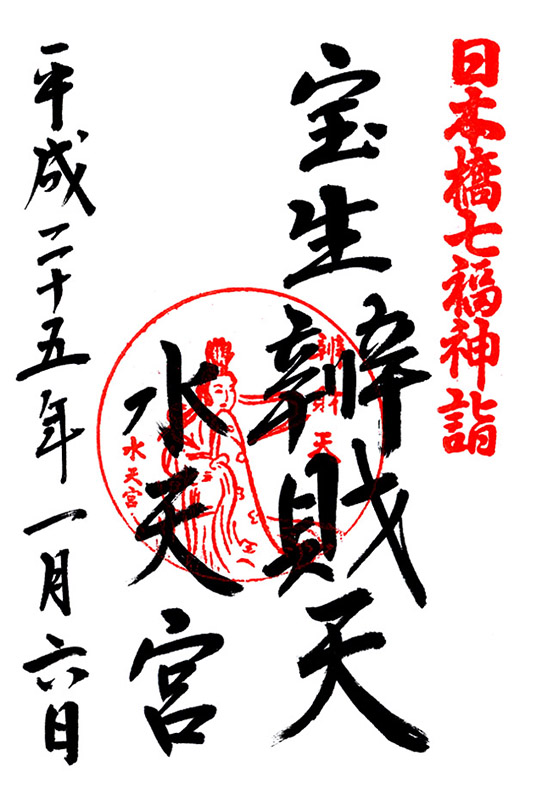 日本橋七福神詣
宝生辨財天
辨財天
水天宮
水天宮
平成二十五年一月六日